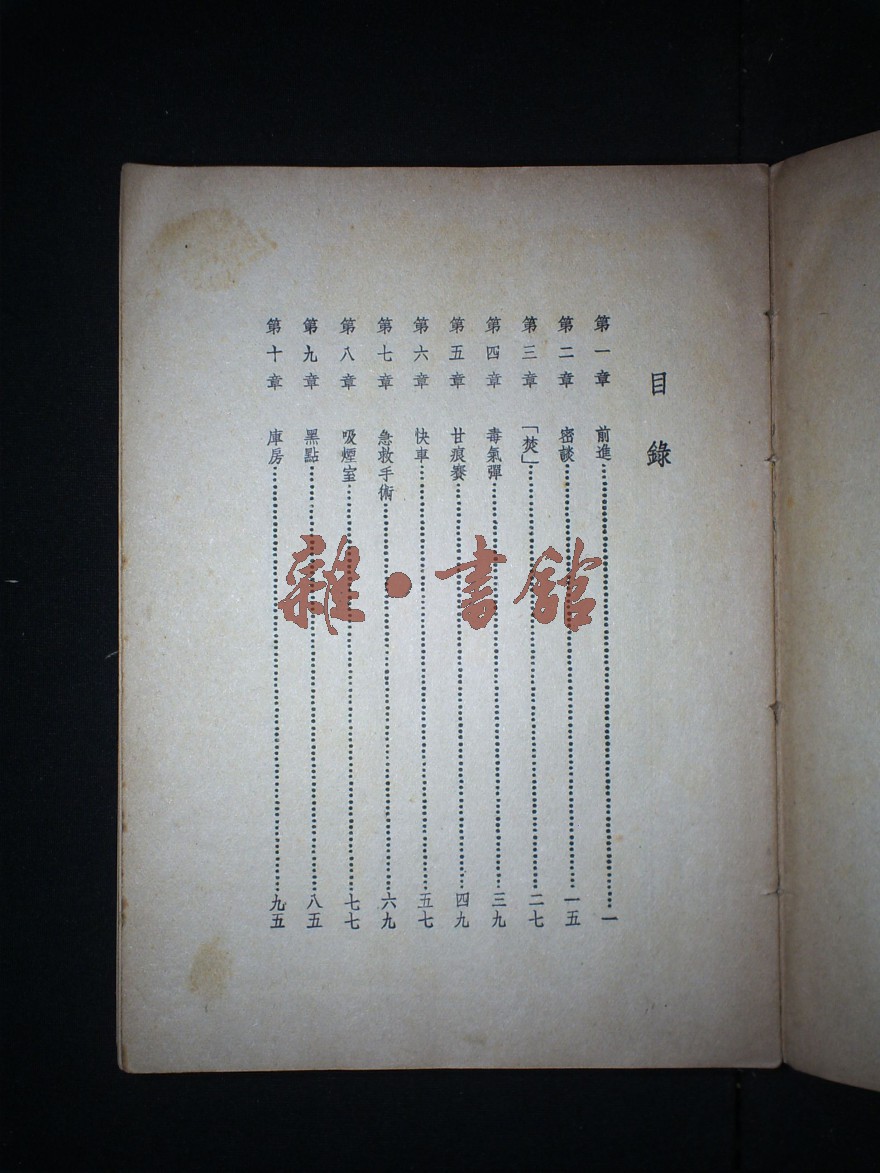 目錄
第一章 前進……一
第二章 密談……一五
第三章 「焚」……二七
第四章 毒氣彈……三九
第五章 甘痕賽……四九
第六章 快車……五七
第七章 急救手術……六九
第八章 吸煙室……七七
第九章 黑點……八五
第十章 庫房……九五
雜·書館